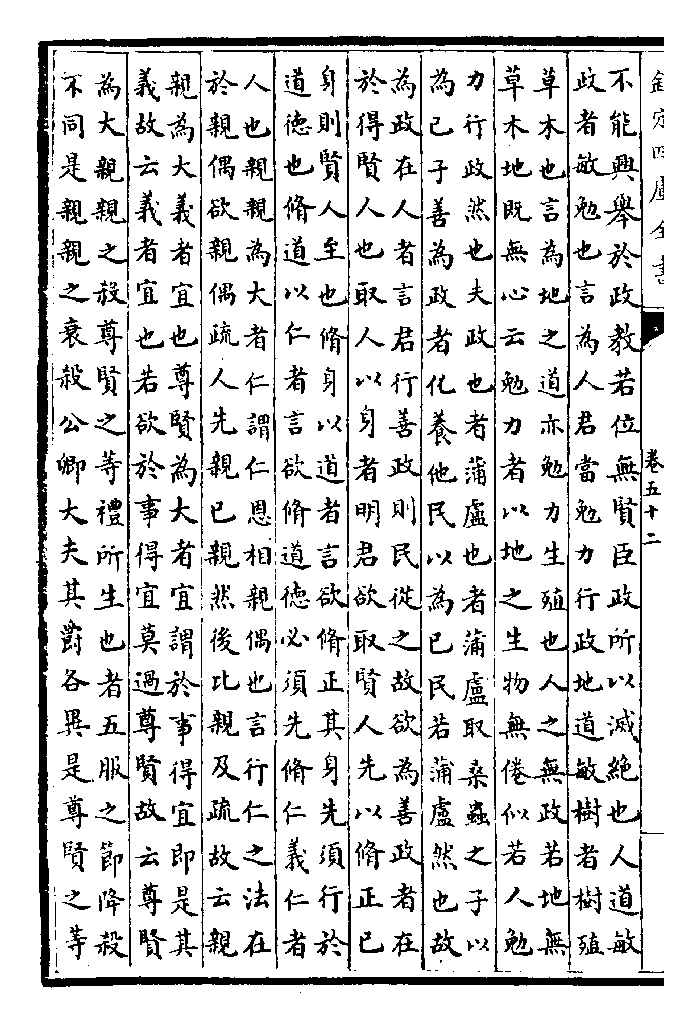 欽定四庫全書
卷五十二
不能興舉於政教若位無賢臣政所以滅絶也人道敏
政者敏勉也言為人君當勉力行政地道敏樹者樹殖
草木也言為地之道亦勉力生殖也人之無政若地無
草木地既無心云勉力者以地之生物無倦似若人勉
力行政然也夫政也者蒲盧也者蒲盧取桑蟲之子以
為已子善為政者化養他民以為已民若蒲盧然也故
為政在人者言君行善政則民從之故欲為善政者在
於得賢人也取人以身者明君欲取賢人先以脩正已
身則賢人至也脩身以道者言欲脩正其身先須行於
道德也脩道以仁者言欲脩道德必須先脩仁義仁者
人也親親為大者仁謂仁恩相親偶也言行仁之法在
於親偶欲親偶疏人先親已親然後比親及疏故云親
親為大義者宜也尊賢為大者宜謂於事得宜即是其
義故云義者宜也若欲於事得宜莫過尊賢故云尊賢
為大親親之殺尊賢之等禮所生也者五服之節降殺
不同是親親之衰殺公卿大夫其爵各異是尊賢之等